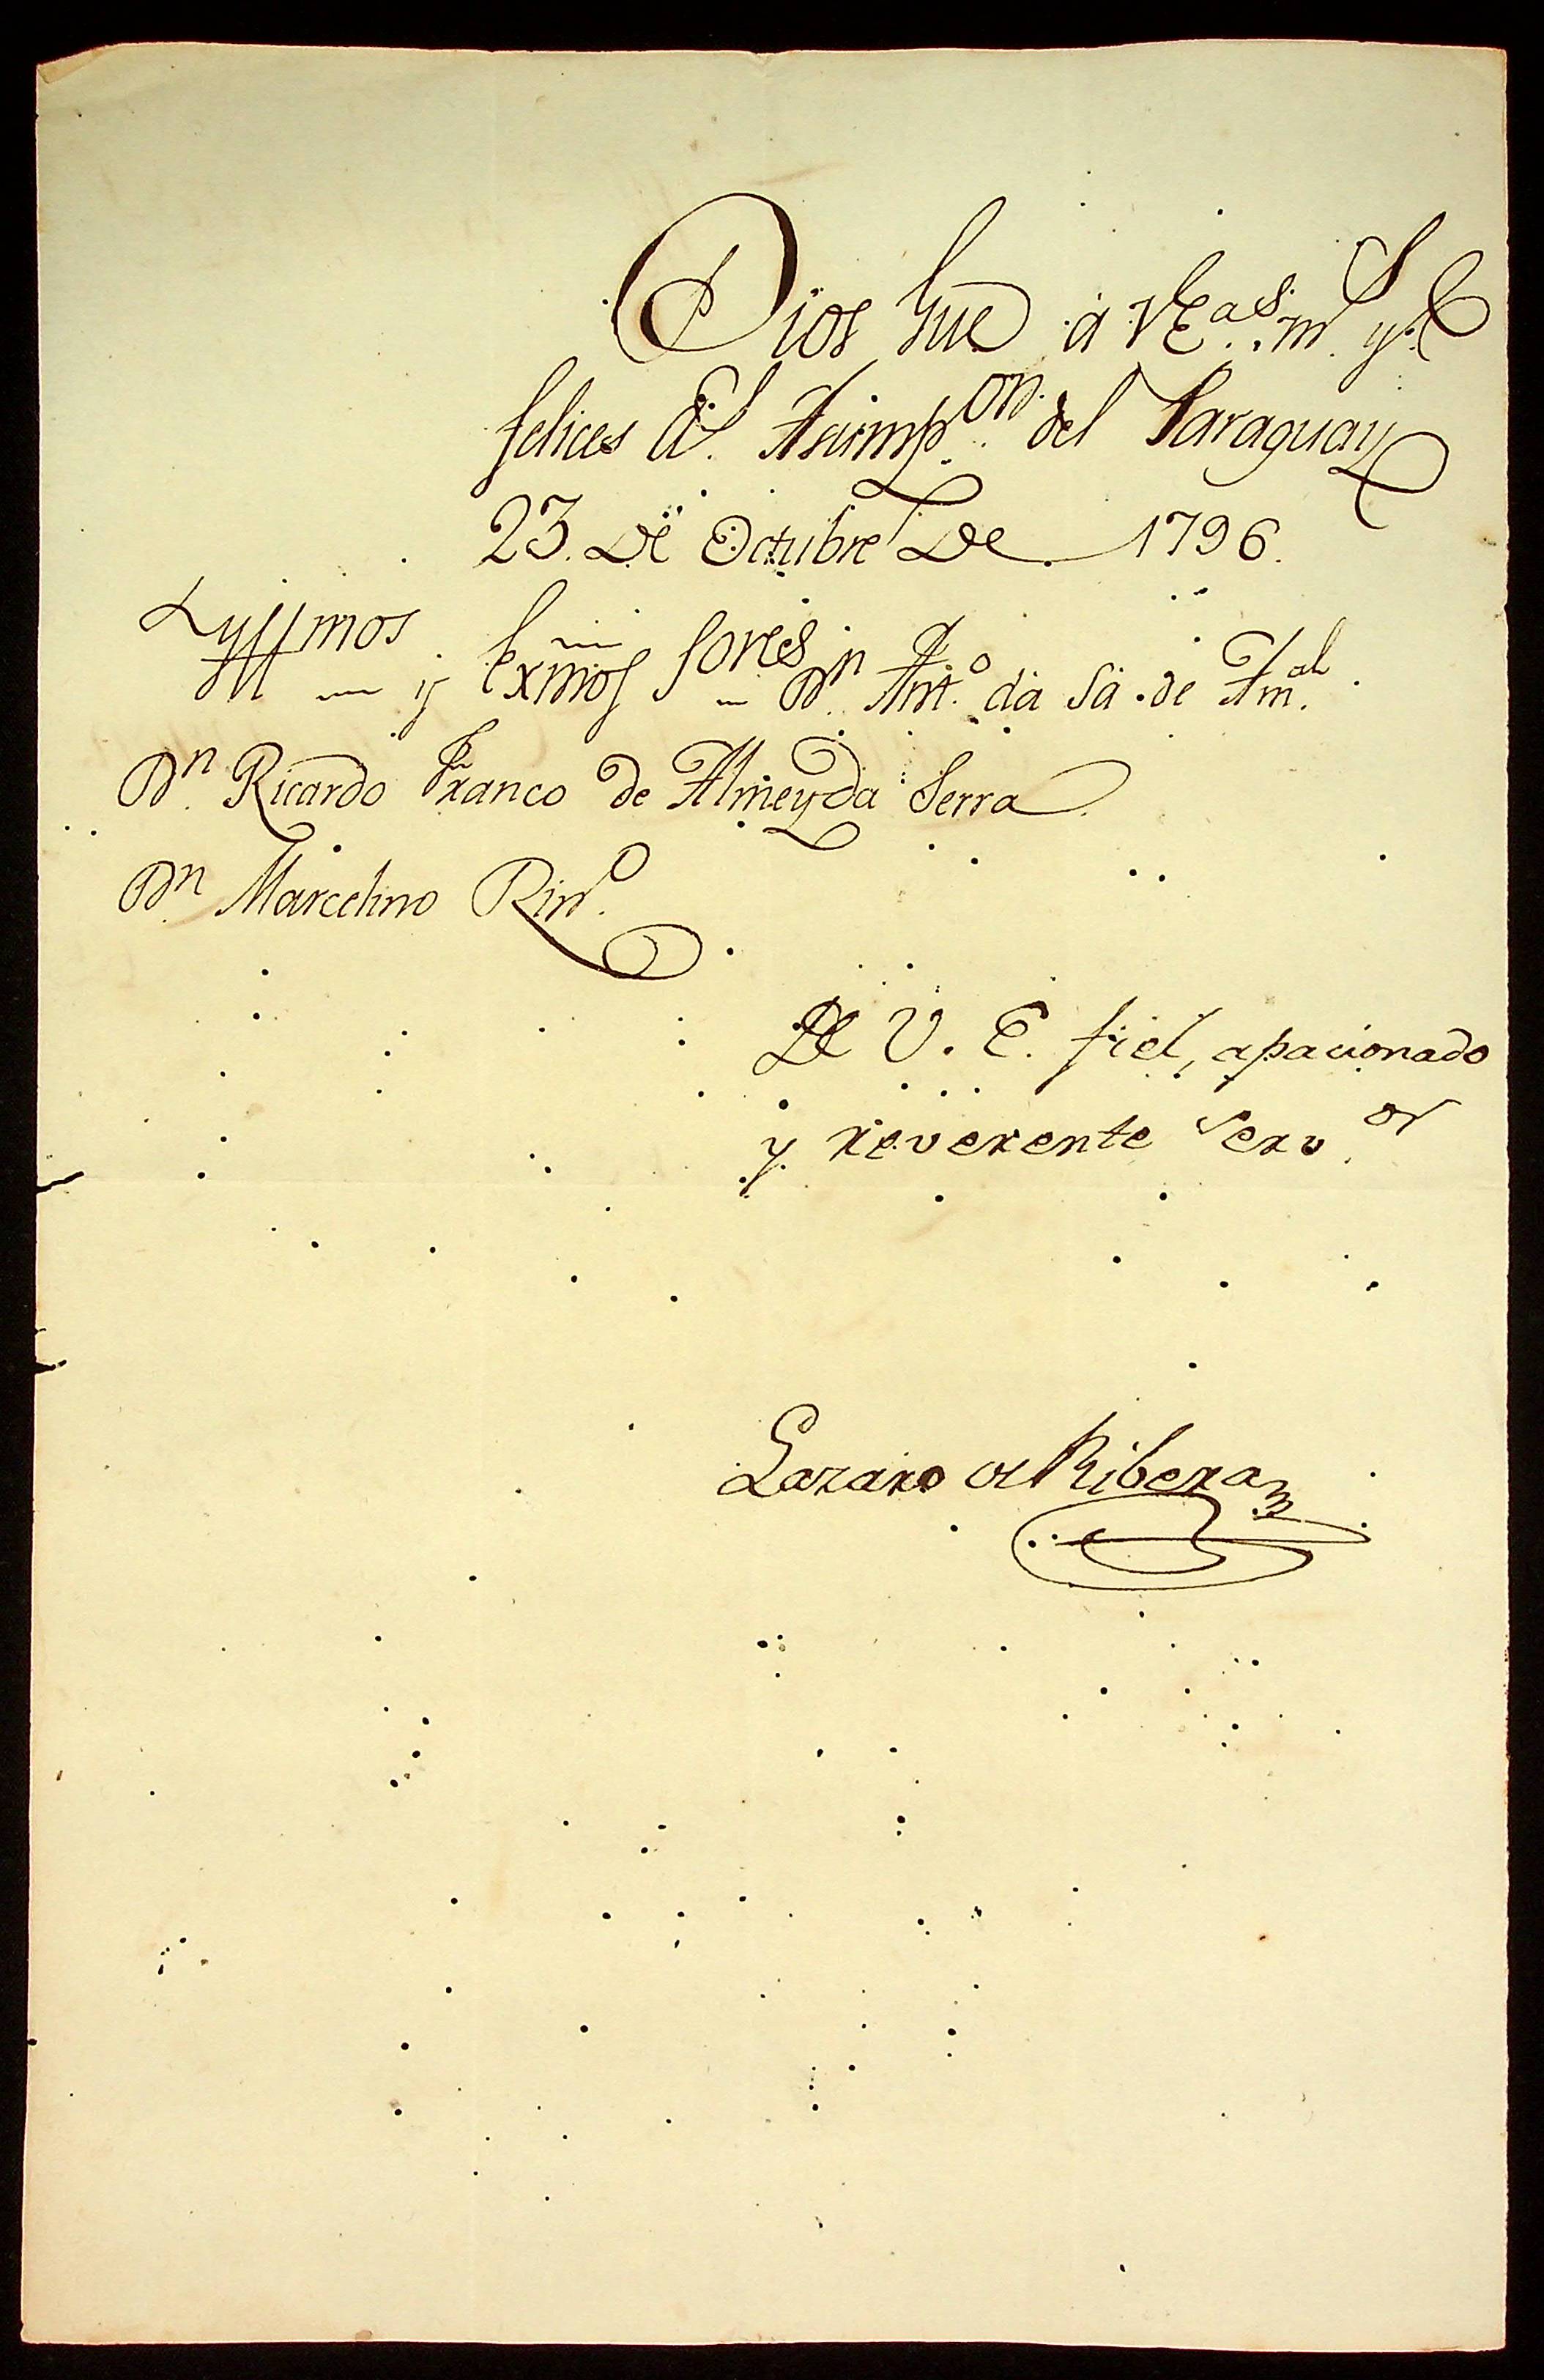 Dios gue à VEas. ms. y
felices as. Asump.on del Paraguay
23. De Octubre De 1796.
Yllmos y Exmos Sores Dn. Ant.o da Sa de Am.al
Dn. Ricardo Franco de Almeyda Serra
Dn. Marcelino Rin.o
De V. E. fiel, apacionado
y reverente Serv.or
Lazaro de Ribera